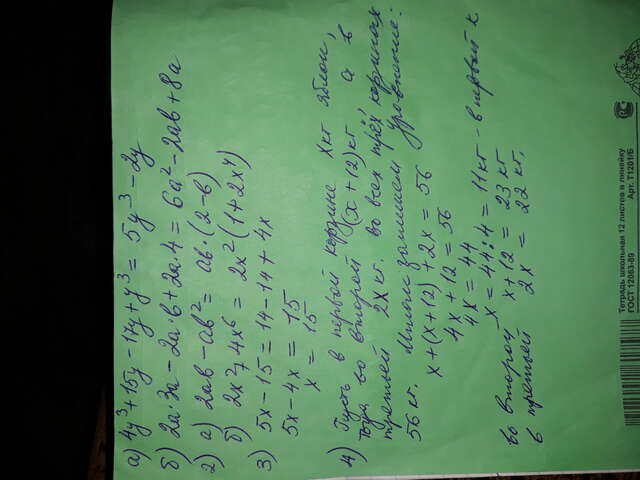 а) 4y³+15y-17y+y³ = 5y³-2y
б) 2a·3a-2ab+2a·4 = 6a²-2ab+8a
2) а) 2ab-ab² = ab·(2-b)
б) 2x²+4x⁶ = 2x²(1+2x⁴)
3) 5x-15=14-14+4x
5x-4x=15
x=15
4) Пусть в первый корзине xкг яблок,
тогда во второй (x+12)кг, а в
третьей 2xкг. во всех трёх корзинах
56 кг. Имеем запишем уравнение:
x+(x+12)+2x=56
4x+12=56
4x=44
x=44:4=11кг-в первый к
во второй x+12=23 кг
в третьей 2x=22 кг.
Тетрадь школьная 12 листов в линейку
ГОСТ 12063-89
Арт. Т1201/Б